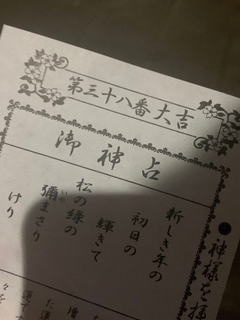 第三十八番 大吉
御神占
新しき年の
初日の
輝きて
松の緑の
彌まさり
けり
●神様を